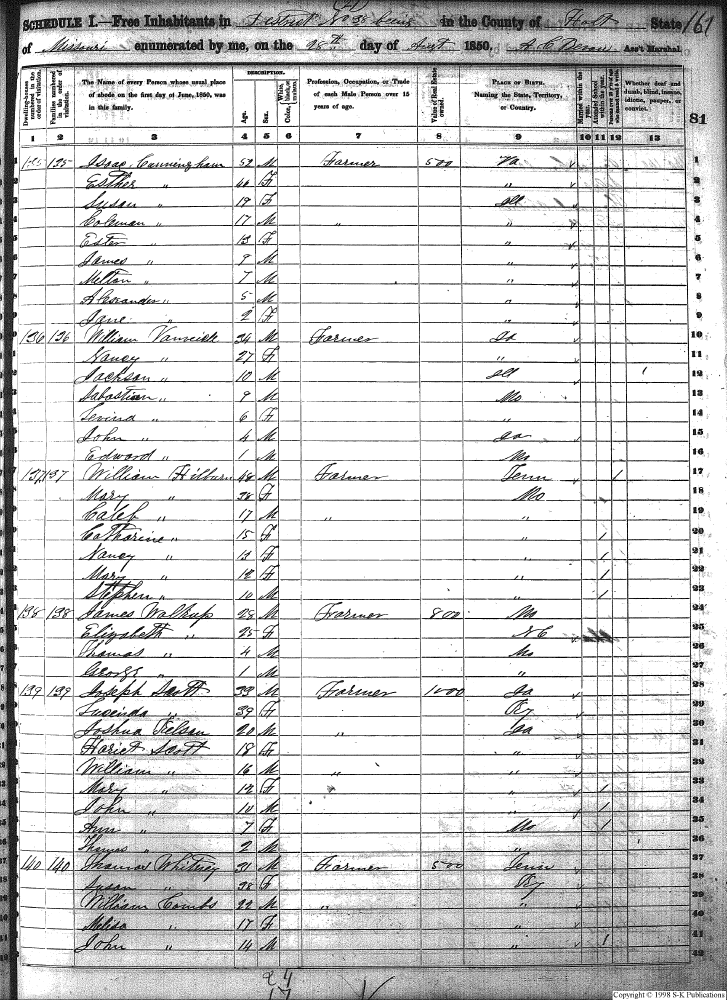 161
SCHEDULE I.—Free Inhabitants in District No 30 in the County of Holt State
of Missouri enumerated by me, on the 28th day of Augt 1850. Ass't Marshal.
Dwelling-houses numbered in the order of visitation.
Families numbered in the order of visitation.
The Name of every Person whose usual place of abode on the first day of June, 1850, was in this family.
DESCRIPTION.
Age.
Sex.
Profession, Occupation, or Trade of each Male Person over 15 years of age.
Value of Real Estate owned.
PLACE OF BIRTH. Naming the State, Territory, or Country.
Married within the year.
Whether deaf and dumb, blind, insane, idiotic, pauper, or convict.
81
1 2 3 4 5 6 7 8 9 10 11 12 13
135 135 Isaac Cunningham 52 M Farmer 500 Va 1
Esther " 40 F " 2
Susan " 19 F Ill 3
Coleman " 17 M " " 4
Ester " 13 F " 5
James " 9 M " 6
Melton " 7 M " 7
Alexander " 5 M " 8
Jane " 2 F " 9
136 136 William 34 M Farmer 10
Nancy " 27 F " 11
Jackson " 10 M Ill 12
Sabastian " 9 M Mo 13
Levina " 6 F " 14
John " 4 M 15
Edward " 1 M Mo 16
137 137 William Hilburn 48 M Farmer Tenn 1 17
Mary " 38 F Mo 18
Caleb " 17 M " " 19
Catharine " 15 F " 1 20
Nancy " 13 F " 1 21
Mary " 12 F " 1 22
Stephen " 10 M " 1 23
138 138 James Walkup 28 M Farmer 800 Mo 24
Elizabeth " 25 F N C 25
Thomas " 4 M Mo 26
George " 1 M " 27
139 139 Joseph Scott 39 M Farmer 1000 28
Lucinda " 39 F Ky 29
Joshua Nelson 20 M " 30
Hariet Scott 18 F " 31
William " 16 M " " 32
Mary " 12 F " 1 33
John " 10 M " 1 34
Ann " 7 F Mo 1 35
Thomas " 2 M " 36
140 140 Whitney 31 M Farmer 500 Tenn 37
Susan " 28 F Ky 38
William Combs 22 M " " 39
Melisa " 17 F " 40
John " 14 M " 1 41
42
Copyright © 1998 S-K Publications